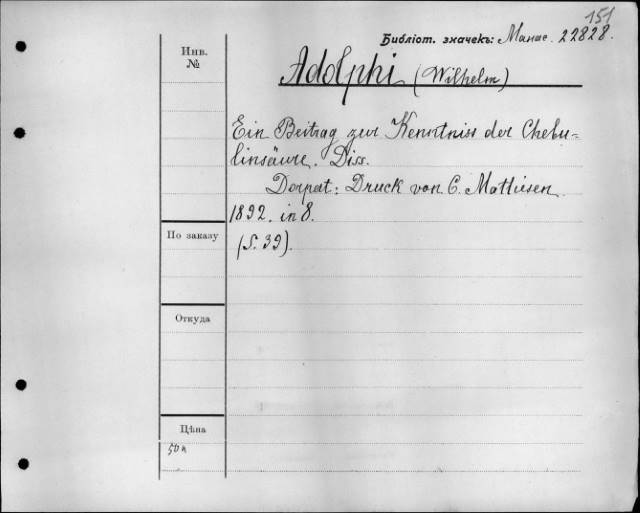 151
Библіот. значекъ: Манас. 22828.
Инв.
№
Adolphi (Wilhelm)
Ein Beitrag zur Kenntniss der Chebu-
linsäure. Diss.
Dorpat: Druck von C. Mattiesen
1892. in 8.
По заказу
(S. 39).
Откуда
Цѣна
50 к